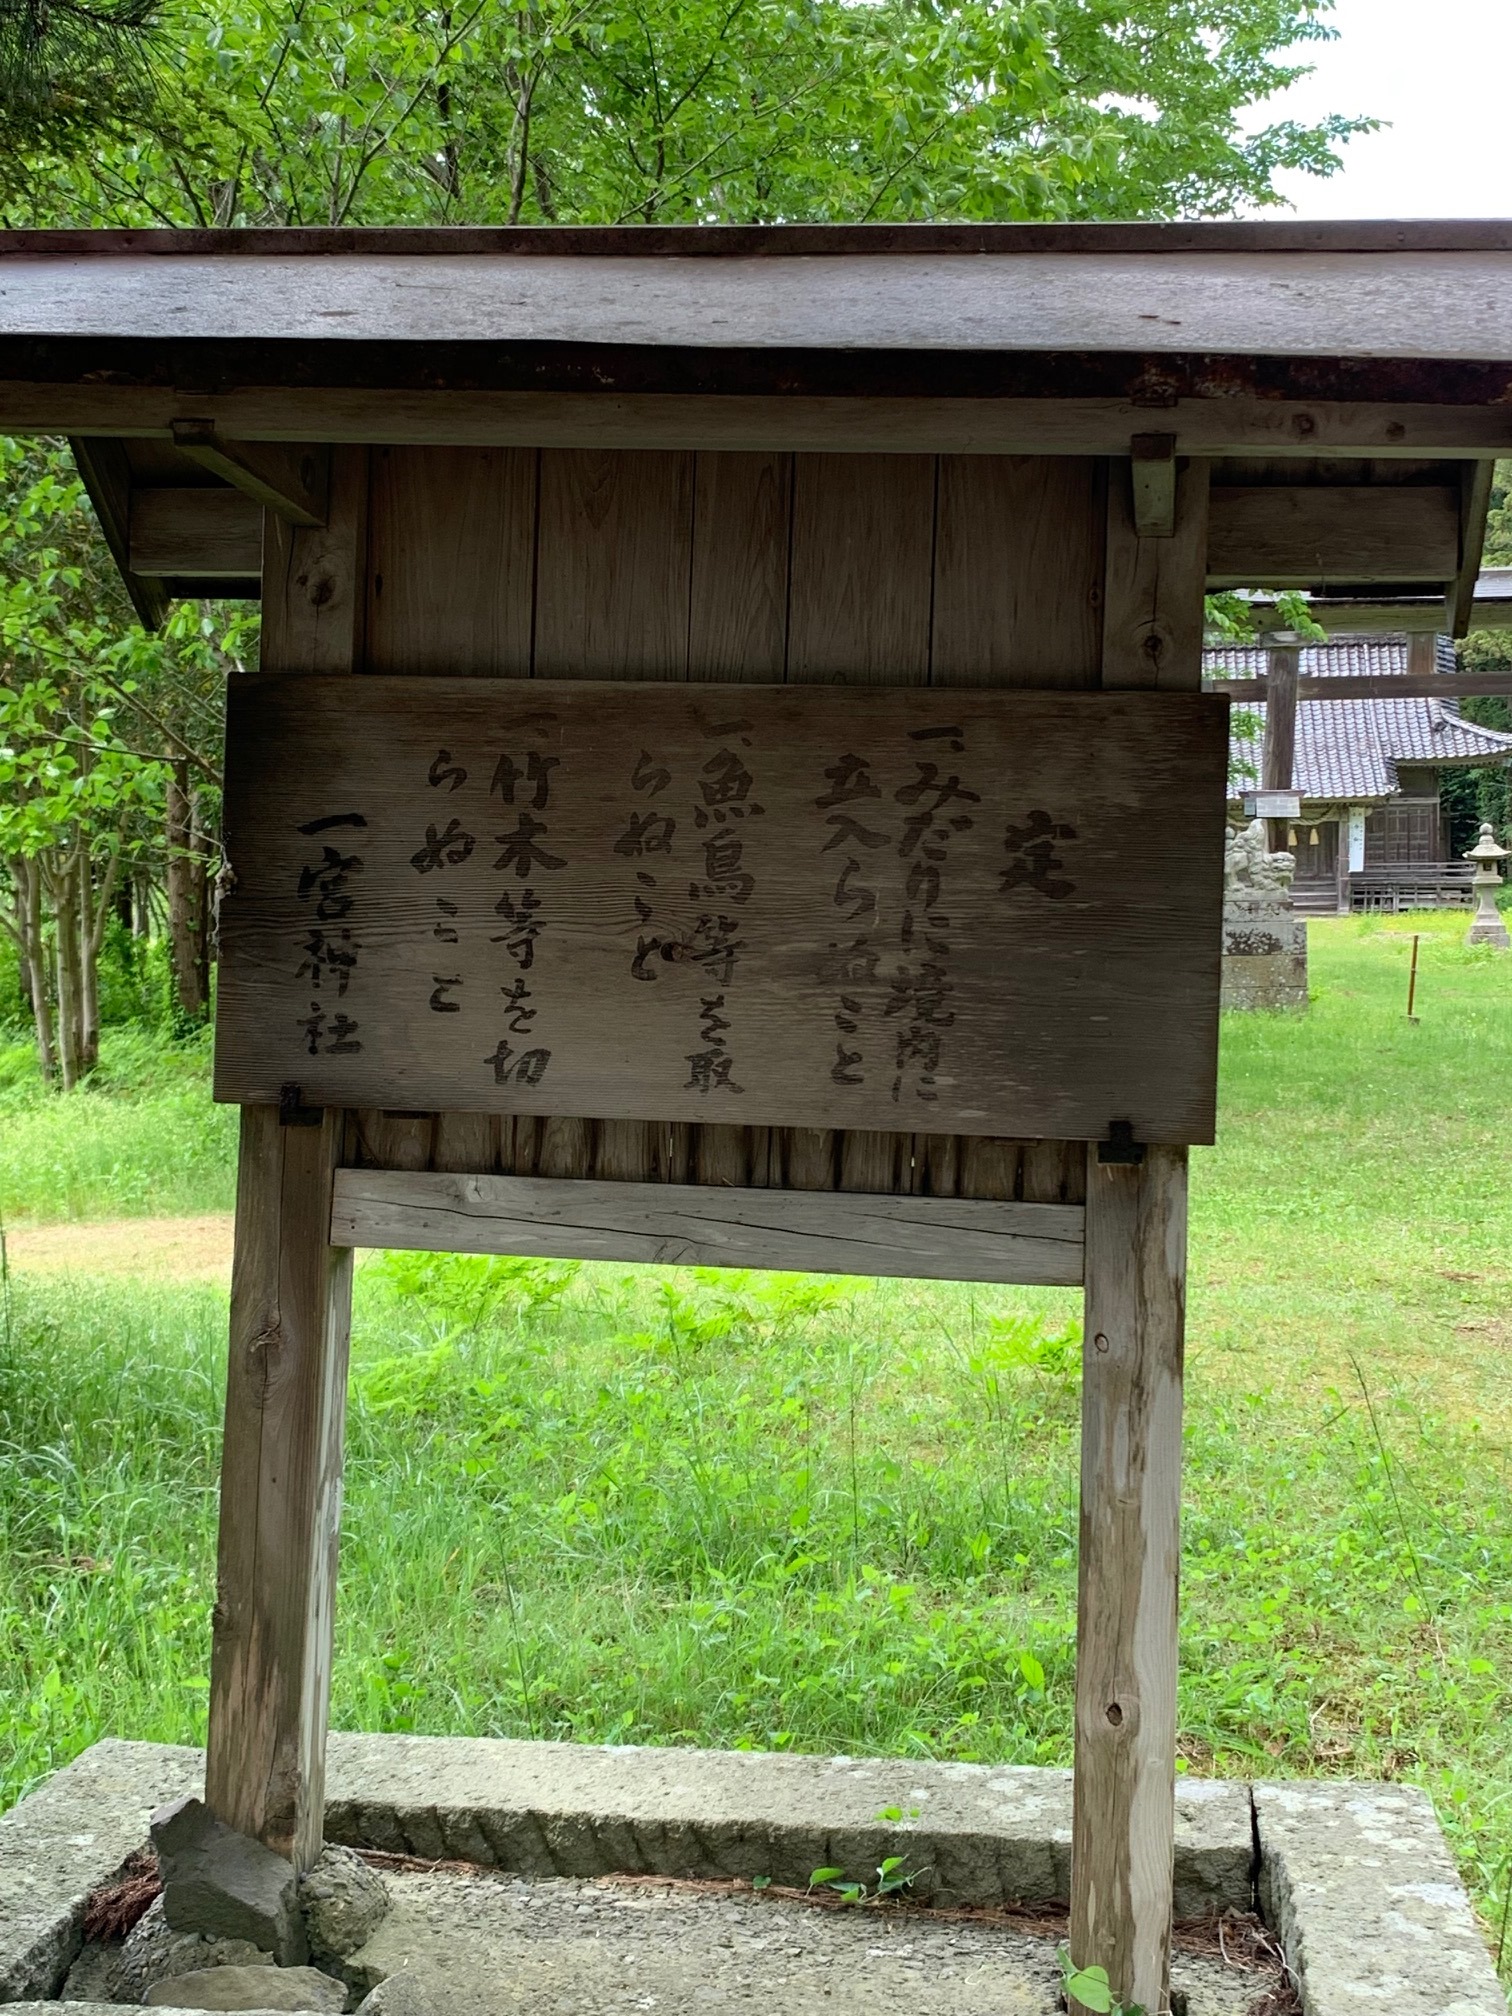 定
一、みだりに境内に
立入らぬこと
一、魚鳥等を取
らぬこと
一、竹木等を切
らぬこと
一宮神社